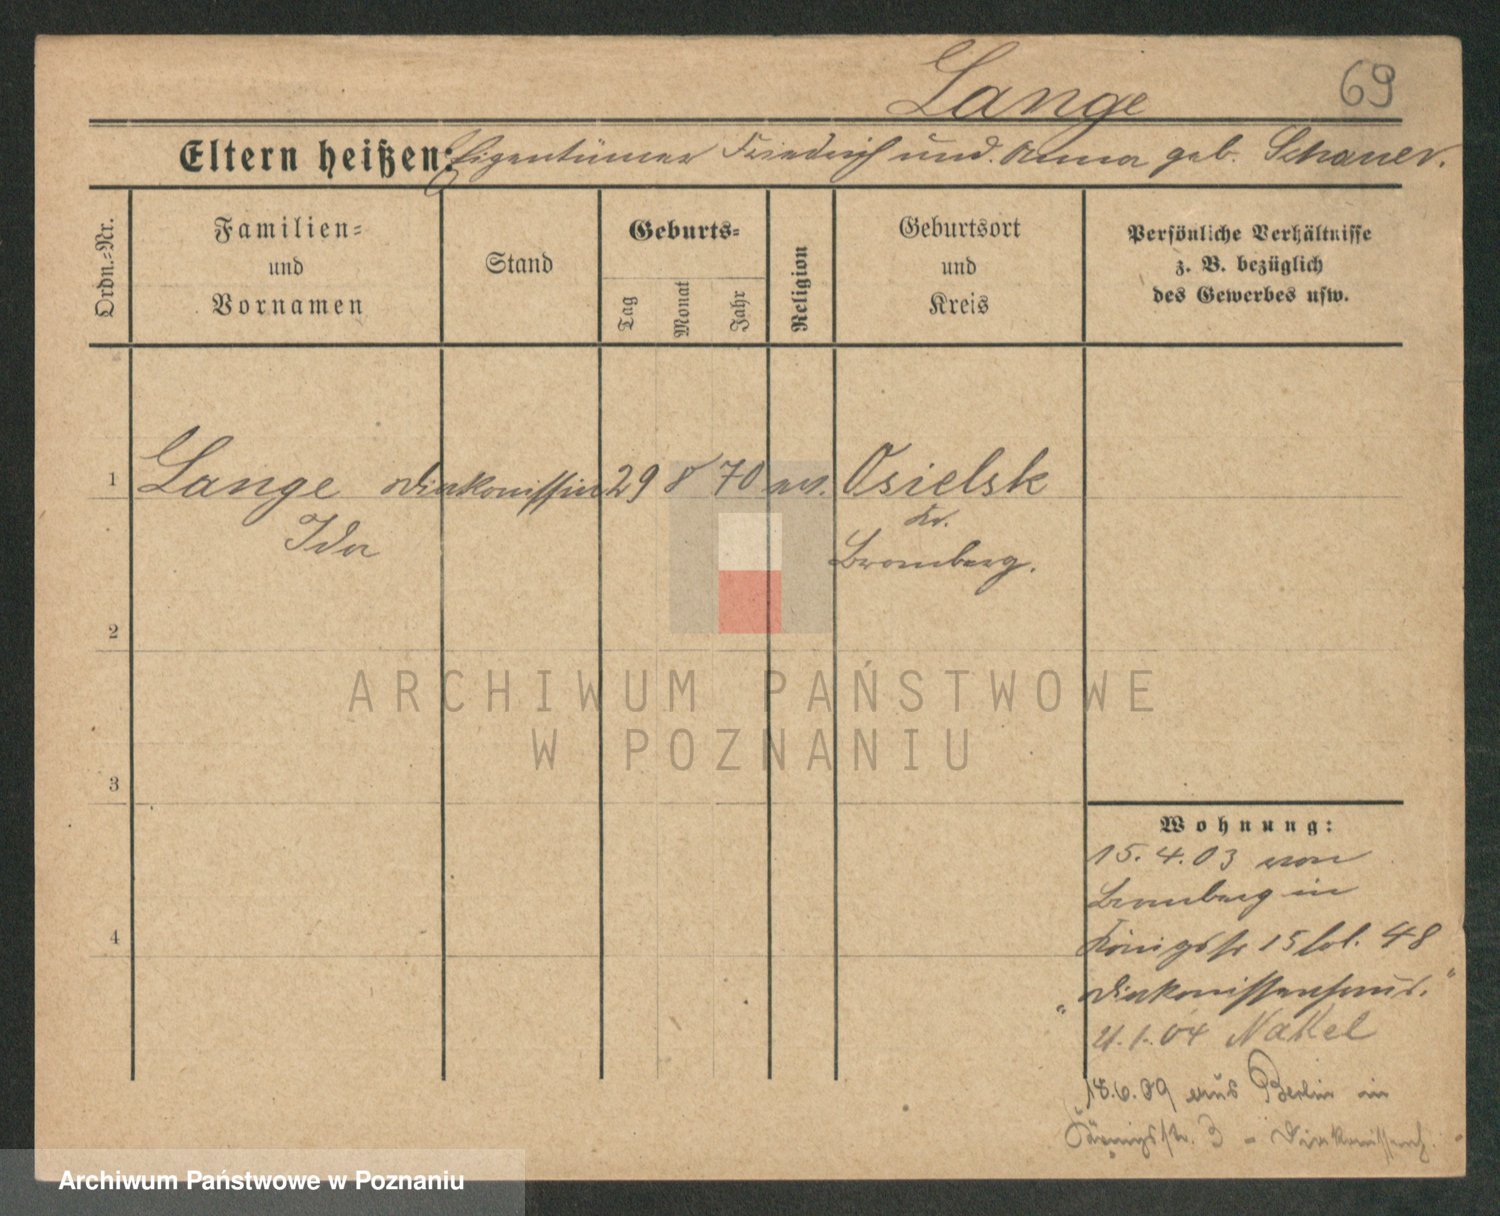 Lange 69
Eltern heißen: Eigentümer Friedrich und Anna geb. Schauer.
Ordn.=Nr.
Familien=
und
Vornamen
Stand
Geburts=
Tag
Monat
Jahr
Religion
Geburtsort
und
Kreis
Persönliche Verhältnisse
z. B. bezüglich
des Gewerbes usw.
1 Lange Diakonissin 29 8 70 ev. Osielsk
Ida Kr.
Bromberg.
2
3
4
ARCHIWUM PAŃSTWOWE
W POZNANIU
Wohnung:
15.4.03 von
Bromberg in
Königstr 15 48
"Diakonissenhaus."
1.04 Nakel
18.6.09 aus Berlin in
Königsstr. 3 - Diakonissenh.
Archiwum Państwowe w Poznaniu